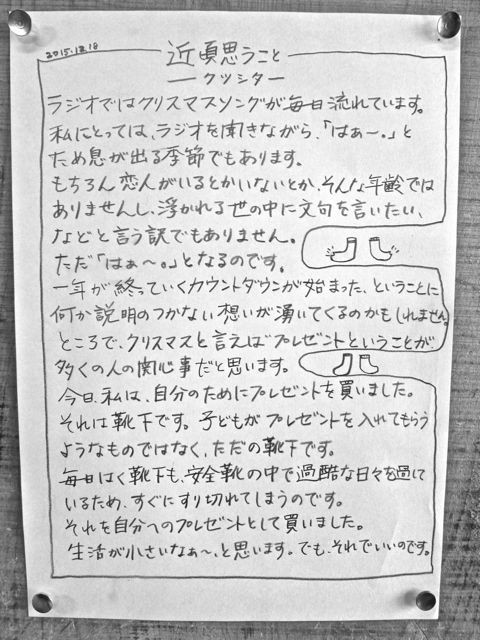 2015.12.18
近頃思うこと
― クツシター
ラジオではクリスマスソングが毎日流れています。
私にとっては、ラジオを聞きながら、「はぁ〜。」と
ため息が出る季節でもあります。
もちろん恋人がいるとかいないとか、そんな年齢では
ありませんし、浮かれる世の中に文句を言いたい、
などと言う訳でもありません。
ただ「はぁ〜。」となるのです。
一年が終っていくカウントダウンが始まった、ということに
何か説明のつかない想いが湧いてくるのかもしれません。
ところで、クリスマスと言えばプレゼントということが
多くの人の関心事だと思います。
今日、私は、自分のためにプレゼントを買いました。
それは靴下です。子どもがプレゼントを入れてもらう
ようなものではなく、ただの靴下です。
毎日はく靴下も、安全靴の中で過酷な日々を過して
いるため、すぐにすり切れてしまうのです。
それを自分へのプレゼントとして買いました。
生活が小さいなぁ〜、と思います。でも、それでいいのです。